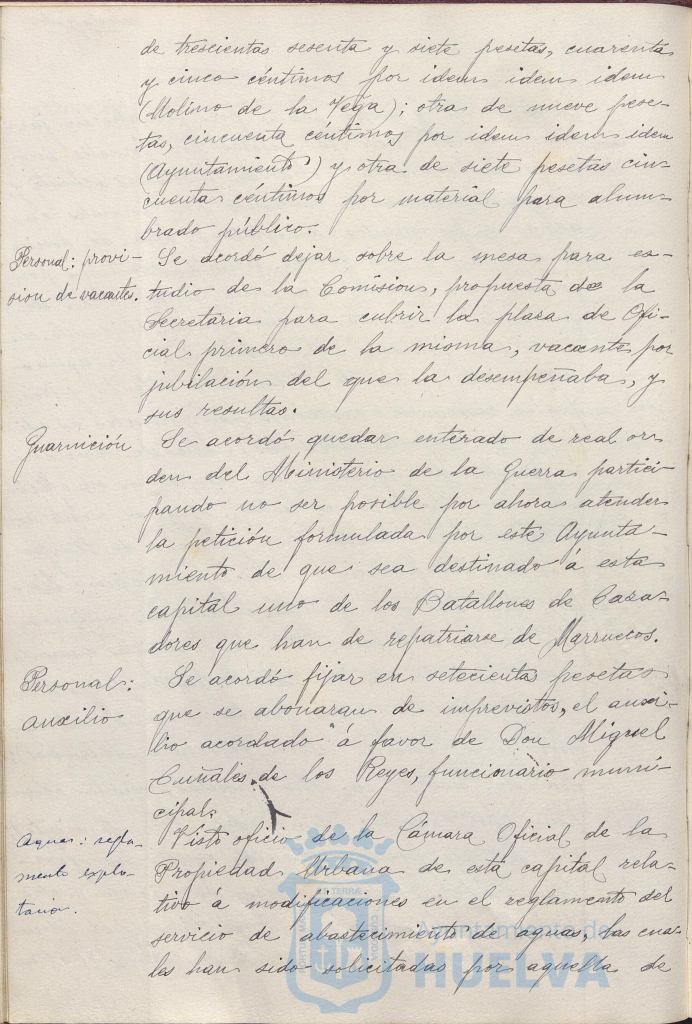 de trescientas sesenta y siete pesetas, cuarenta
y cinco céntimos por idem idem idem
(Molino de la Vega); otra de nueve pese-
tas, cincuenta céntimos por idem idem idem
(Ayuntamiento) y otra de siete pesetas cin-
cuenta céntimos por material para alum-
brado público.
Personal: provi-
sion de vacantes.
Se acordó dejar sobre la mesa para es-
tudio de la Comision, propuesta de la
Secretaria para cubrir la plaza de Ofi-
cial primero de la misma, vacante por
jubilación del que la desempeñaba, y
sus resultas.
Guarnición
Se acordó quedar enterado de real or-
den del Ministerio de la Guerra partici-
pando no ser posible por ahora atender
la petición formulada por este Ayunta-
miento de que sea destinado á esta
capital uno de los Batallones de Caza-
dores que han de repatriarse de Marruecos.
Personal:
auxilio
Se acordó fijar en setecientas pesetas
que se abonaran de imprevistos, el auxi-
lio acordado á favor de Don Miguel
Cuñales de los Reyes, funcionario muni-
cipal.
Aguas: regla-
mento explo-
tario.
Visto oficio de la Cámara Oficial de la
Propiedad Urbana de esta capital rela-
tivo á modificaciones en el reglamento del
servicio de abastecimiento de aguas, las cua-
les han sido solicitadas por aquella de
Ayuntamiento de
HUELVA